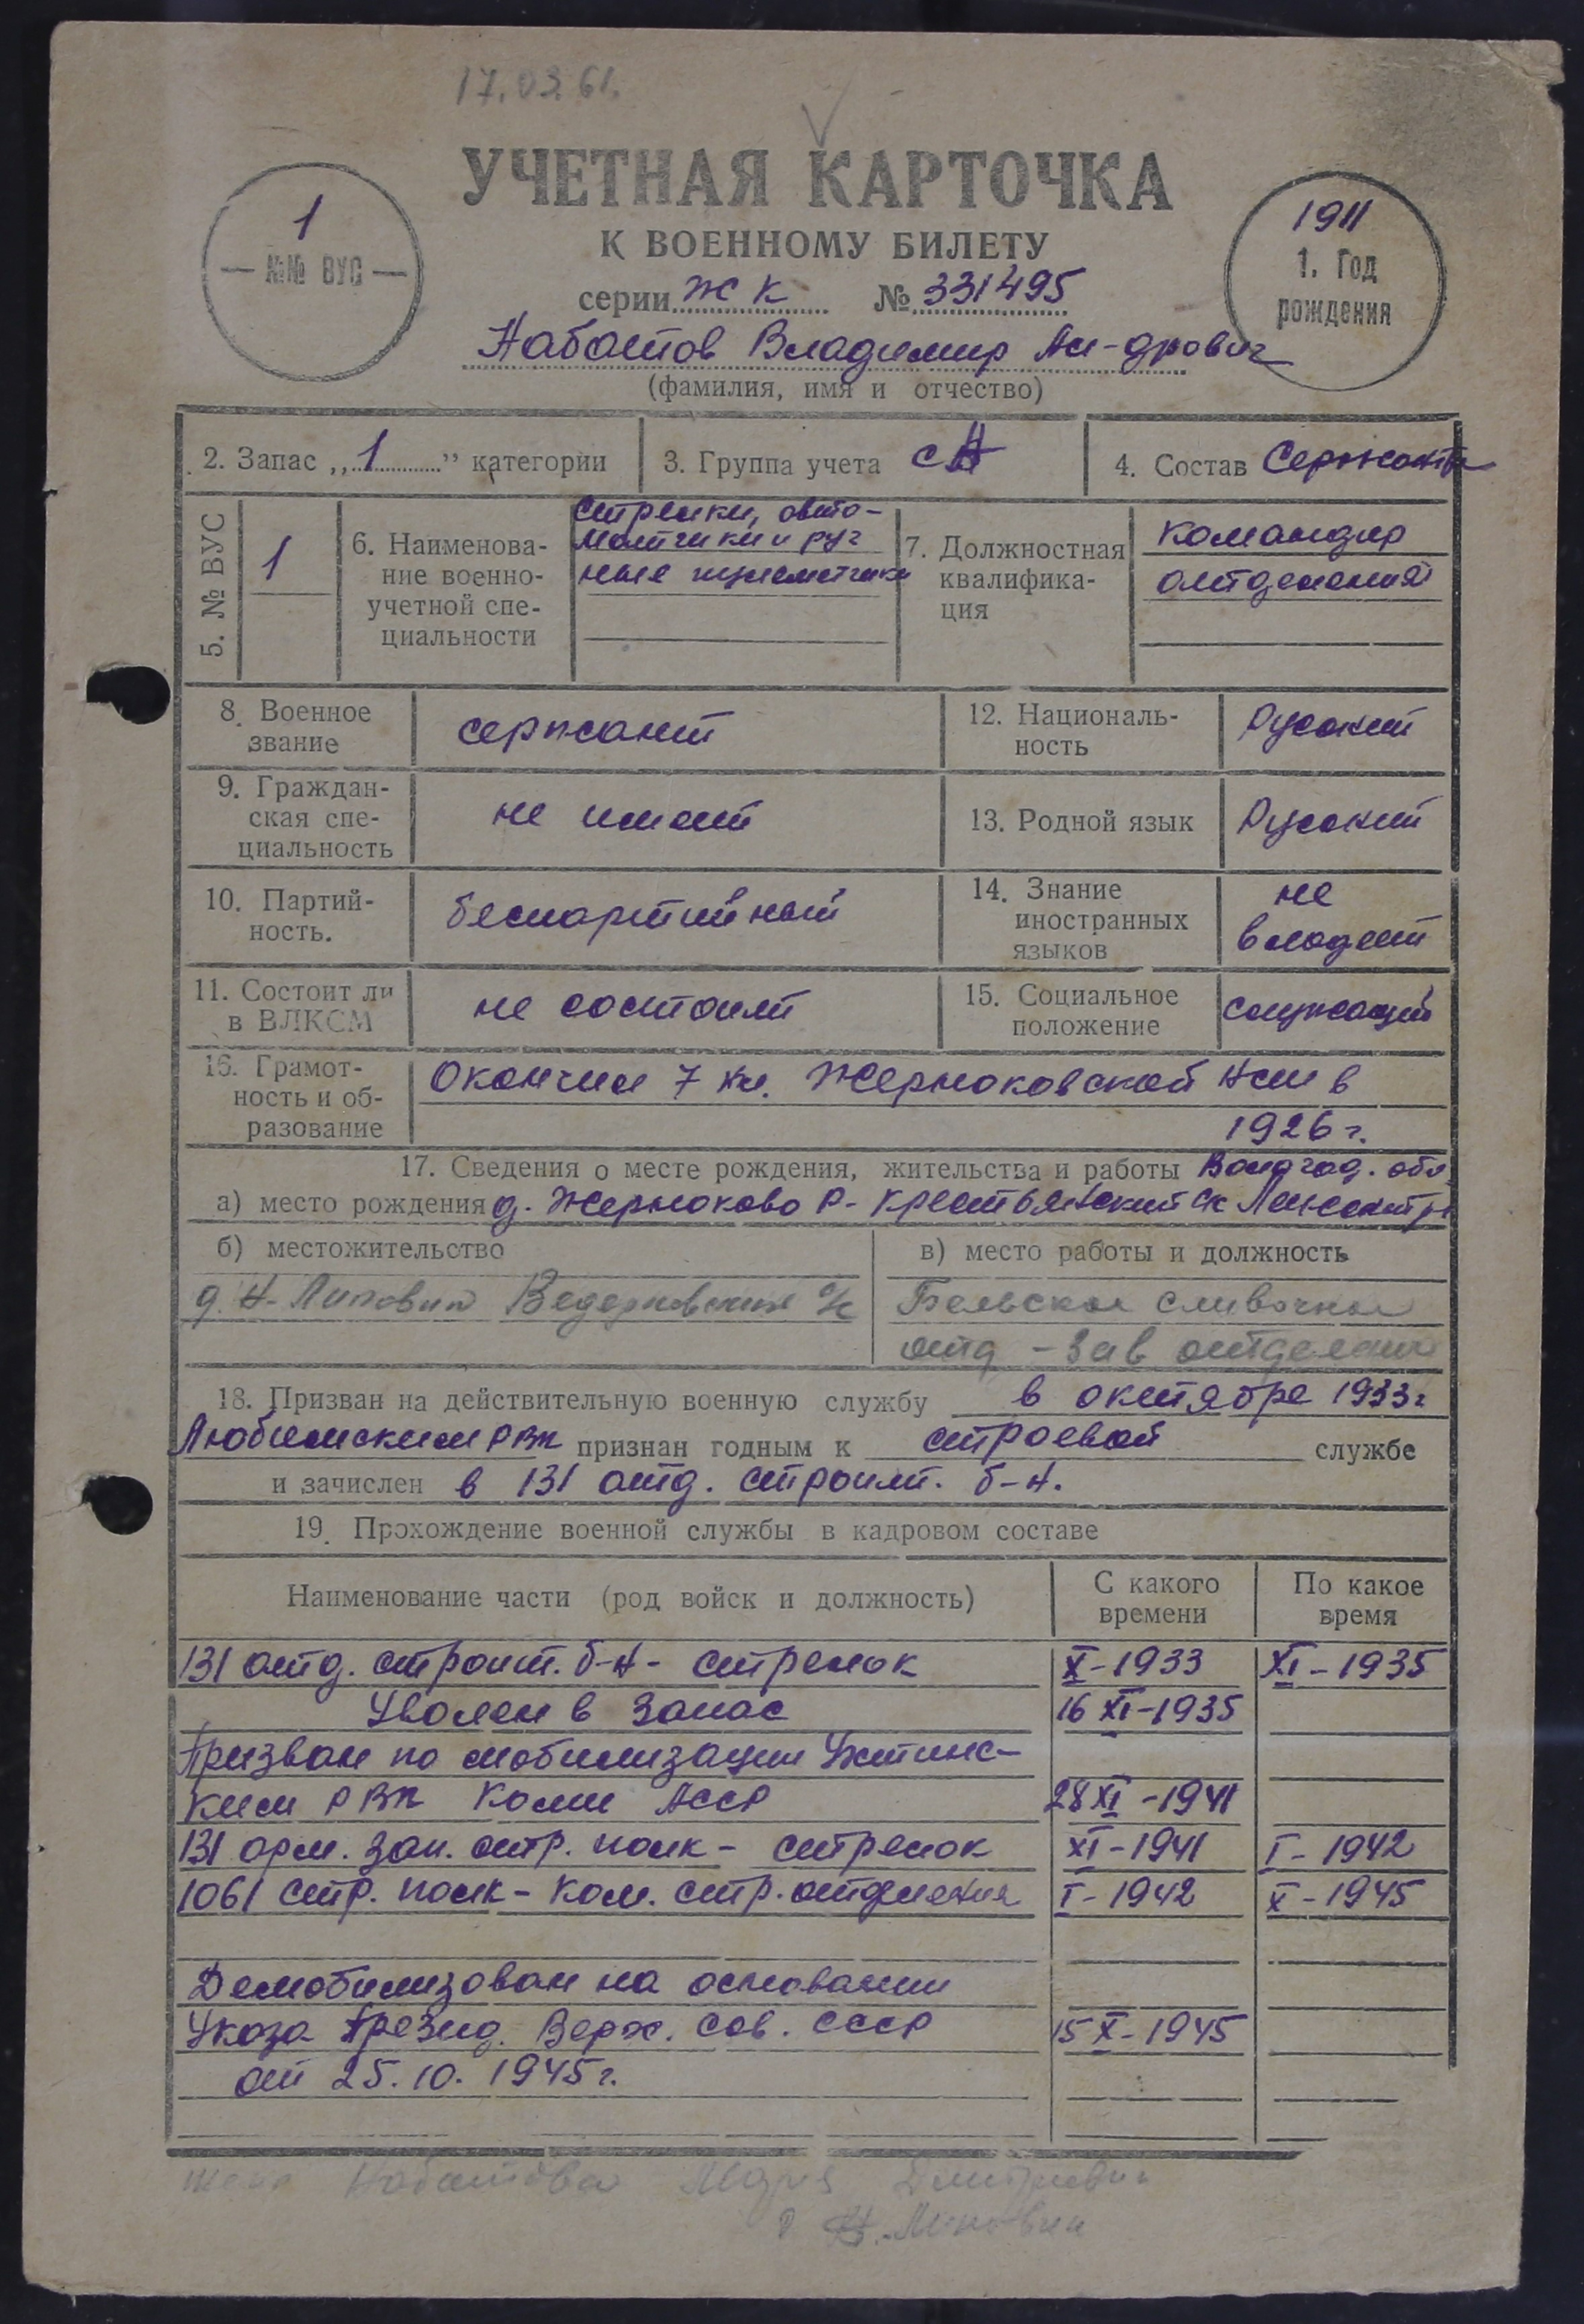 17.03.61.
УЧЕТНАЯ КАРТОЧКА
К ВОЕННОМУ БИЛЕТУ
1
— №№ ВУС —
1911
1. Год
рождения
серии ЖК № 331495
Набатов Владимир Ал-дрович
(фамилия, имя и отчество)
2. Запас „1" категории
3. Группа учета СА
4. Состав Сержанты
5. № ВУС
1
6. Наименова-
ние военно-
учетной спе-
циальности
Стрелки, авто-
матчики и руч
ные пулеметчики
7. Должностная
квалифика-
ция
командир
отделения
8. Военное
звание
сержант
12. Националь-
ность
Русский
9. Граждан-
ская спе-
циальность
не имеет
13. Родной язык
Русский
10. Партий-
ность.
беспартийный
14. Знание
иностранных
языков
не
владеет
11. Состоит ли
в ВЛКСМ
не состоит
15. Социальное
положение
служащий
16. Грамот-
ность и об-
разование
Окончил 7 кл. в
1926 г.
17. Сведения о месте рождения, жительства и работы обл.
а) место рождения д.
б) местожительство
д. Н-Липовик с/с
в) место работы и должность
отд - зав отделения
18. Призван на действительную военную службу в октябре 1933 г
Любимским РВК признан годным к строевой службе
и зачислен в 131 отд. строит. б-н.
19. Прохождение военной службы в кадровом составе
Наименование части (род войск и должность)
С какого
времени
По какое
время
131 отд. строит. б-н - стрелок X-1933 XI-1935
Уволен в запас 16 XI-1935
Призван по мобилизации Ухтинс-
ким РВК Коми АССР 28 XI-1941
131 арм. зап. стр. полк - стрелок XI-1941 I-1942
1061 стр. полк - ком. стр. отделения I-1942 X-1945
Демобилизован на основании
Указа Презид. Верх. Сов. СССР 15 X-1945
от 25.10.1945 г.
жена Набатова Дмитриевн
Н.-Липовик